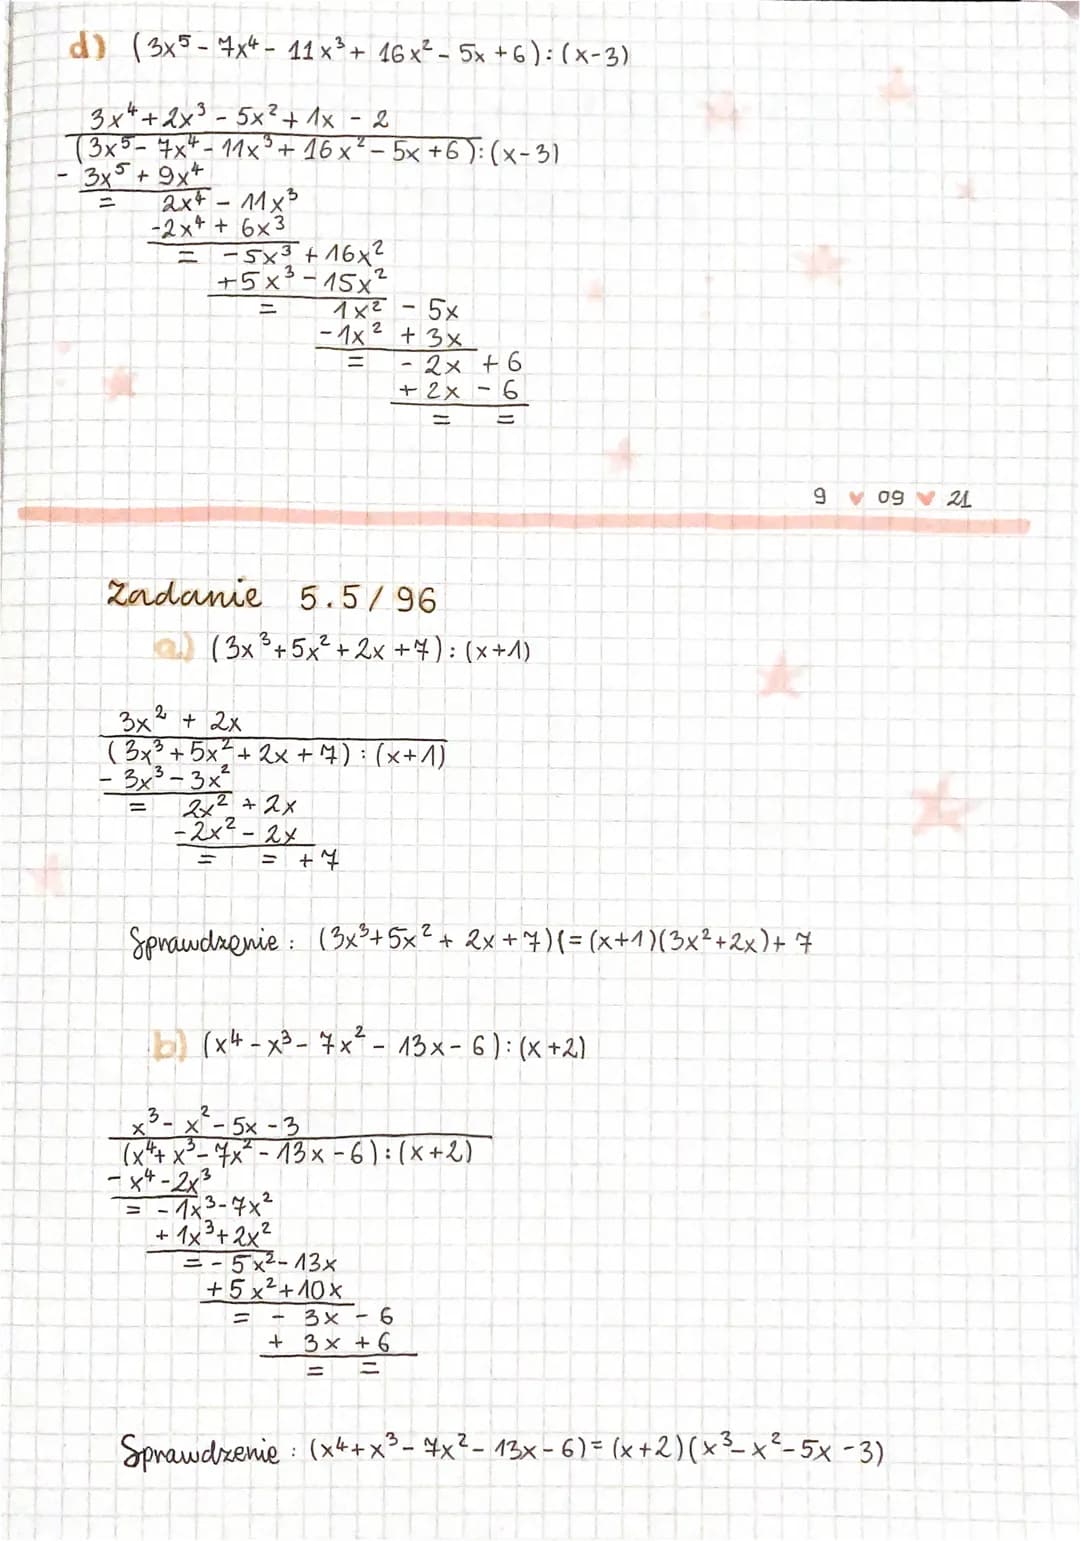 d) (3x⁵ - 7x⁴ - 11x³ + 16x² - 5x + 6) : (x-3)
3x⁴ + 2x³ - 5x² + 1x - 2
(3x⁵ - 7x⁴ - 11x³ + 16x² - 5x + 6) : (x-3)
- 3x⁵ + 9x⁴
= 2x⁴ - 11x³
-2x⁴ + 6x³
= -5x³ + 16x²
+5x³ - 15x²
= 1x² - 5x
-1x² + 3x
= - 2x + 6
+ 2x - 6
= =
9 ♥ 09 ♥ 21
Zadanie 5.5/96
a) (3x³ + 5x² + 2x + 7) : (x+1)
3x² + 2x
(3x³ + 5x² + 2x + 7) : (x+1)
- 3x³ - 3x²
= 2x² + 2x
-2x² - 2x
= = + 7
Sprawdzenie : (3x³+5x² + 2x + 7) (= (x+1)(3x²+2x) + 7
b) (x⁴ - x³ - 7x² - 13x - 6) : (x+2)
x³ - x² - 5x - 3
(x⁴ + x³ - 7x² - 13x - 6) : (x+2)
- x⁴ - 2x³
= - 1x³ - 7x²
+ 1x³ + 2x²
= - 5x² - 13x
+ 5x² + 10x
= - 3x - 6
+ 3x + 6
= =
Sprawdzenie : (x⁴ + x³ - 7x² - 13x - 6) = (x+2)(x³ - x² - 5x - 3)